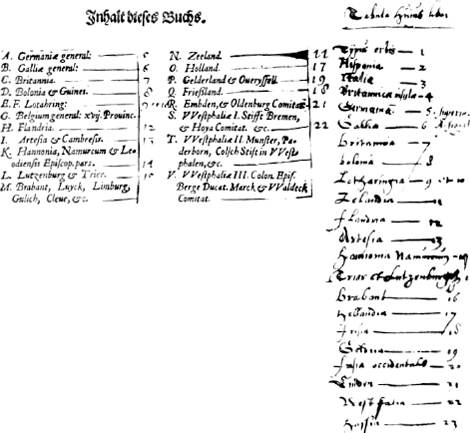 Inhalt dieses Buchs.
A. Germaniæ general: 5
B. Galliæ general: 6
C. Britannia. 7
D. Bolonia & Guines. 8
E.F. Lotahring:
G. Belgium general: xvij. Provinc.
H. Flandria. 12
I. Artesia & Cambresis. 13
K. Hannonia, Namurcum & Leo-
diensis Episcop. pars. 14
L. Lutzenburg & Trier.
M. Brabant, Luyck, Limburg,
Gulich, Cleue, &c.
N. Zeeland. 11
O. Holland. 17
P. Gelderland & Overyssell. 19
Q. Frießland. 18
R. Embden, & Oldenburg Comitat. 21
S. VVestphaliæ I. Stifft Bremen,
& Hoya Comitat. &c. 22
T. VVestphaliæ II. Munster, Pa-
derborn, Colsch Stift in VVest-
phalen, &c.
V. VVestphaliæ III. Colon. Epif.
Berge Ducat. Marck & VValdeck
Comitat.
Tabula huius libri
Typus orbis — 1
Hispania — 2
Italia — 3
Britannicæ insulæ — 4
Germania — 5
Gallia — 6
Britannia — 7
bolonia — 8
Lotharingia — 9 et 10
Zelandia — 11
flandria — 12
Artesia — 13
Hannonia Namurcum
Trier et Lutzenburg
Brabant — 16
Hollandia — 17
frisia — 18
Geldria — 19
frisia occidentalis — 20
Emden — 21
Westfalia — 22
Hassia — 23